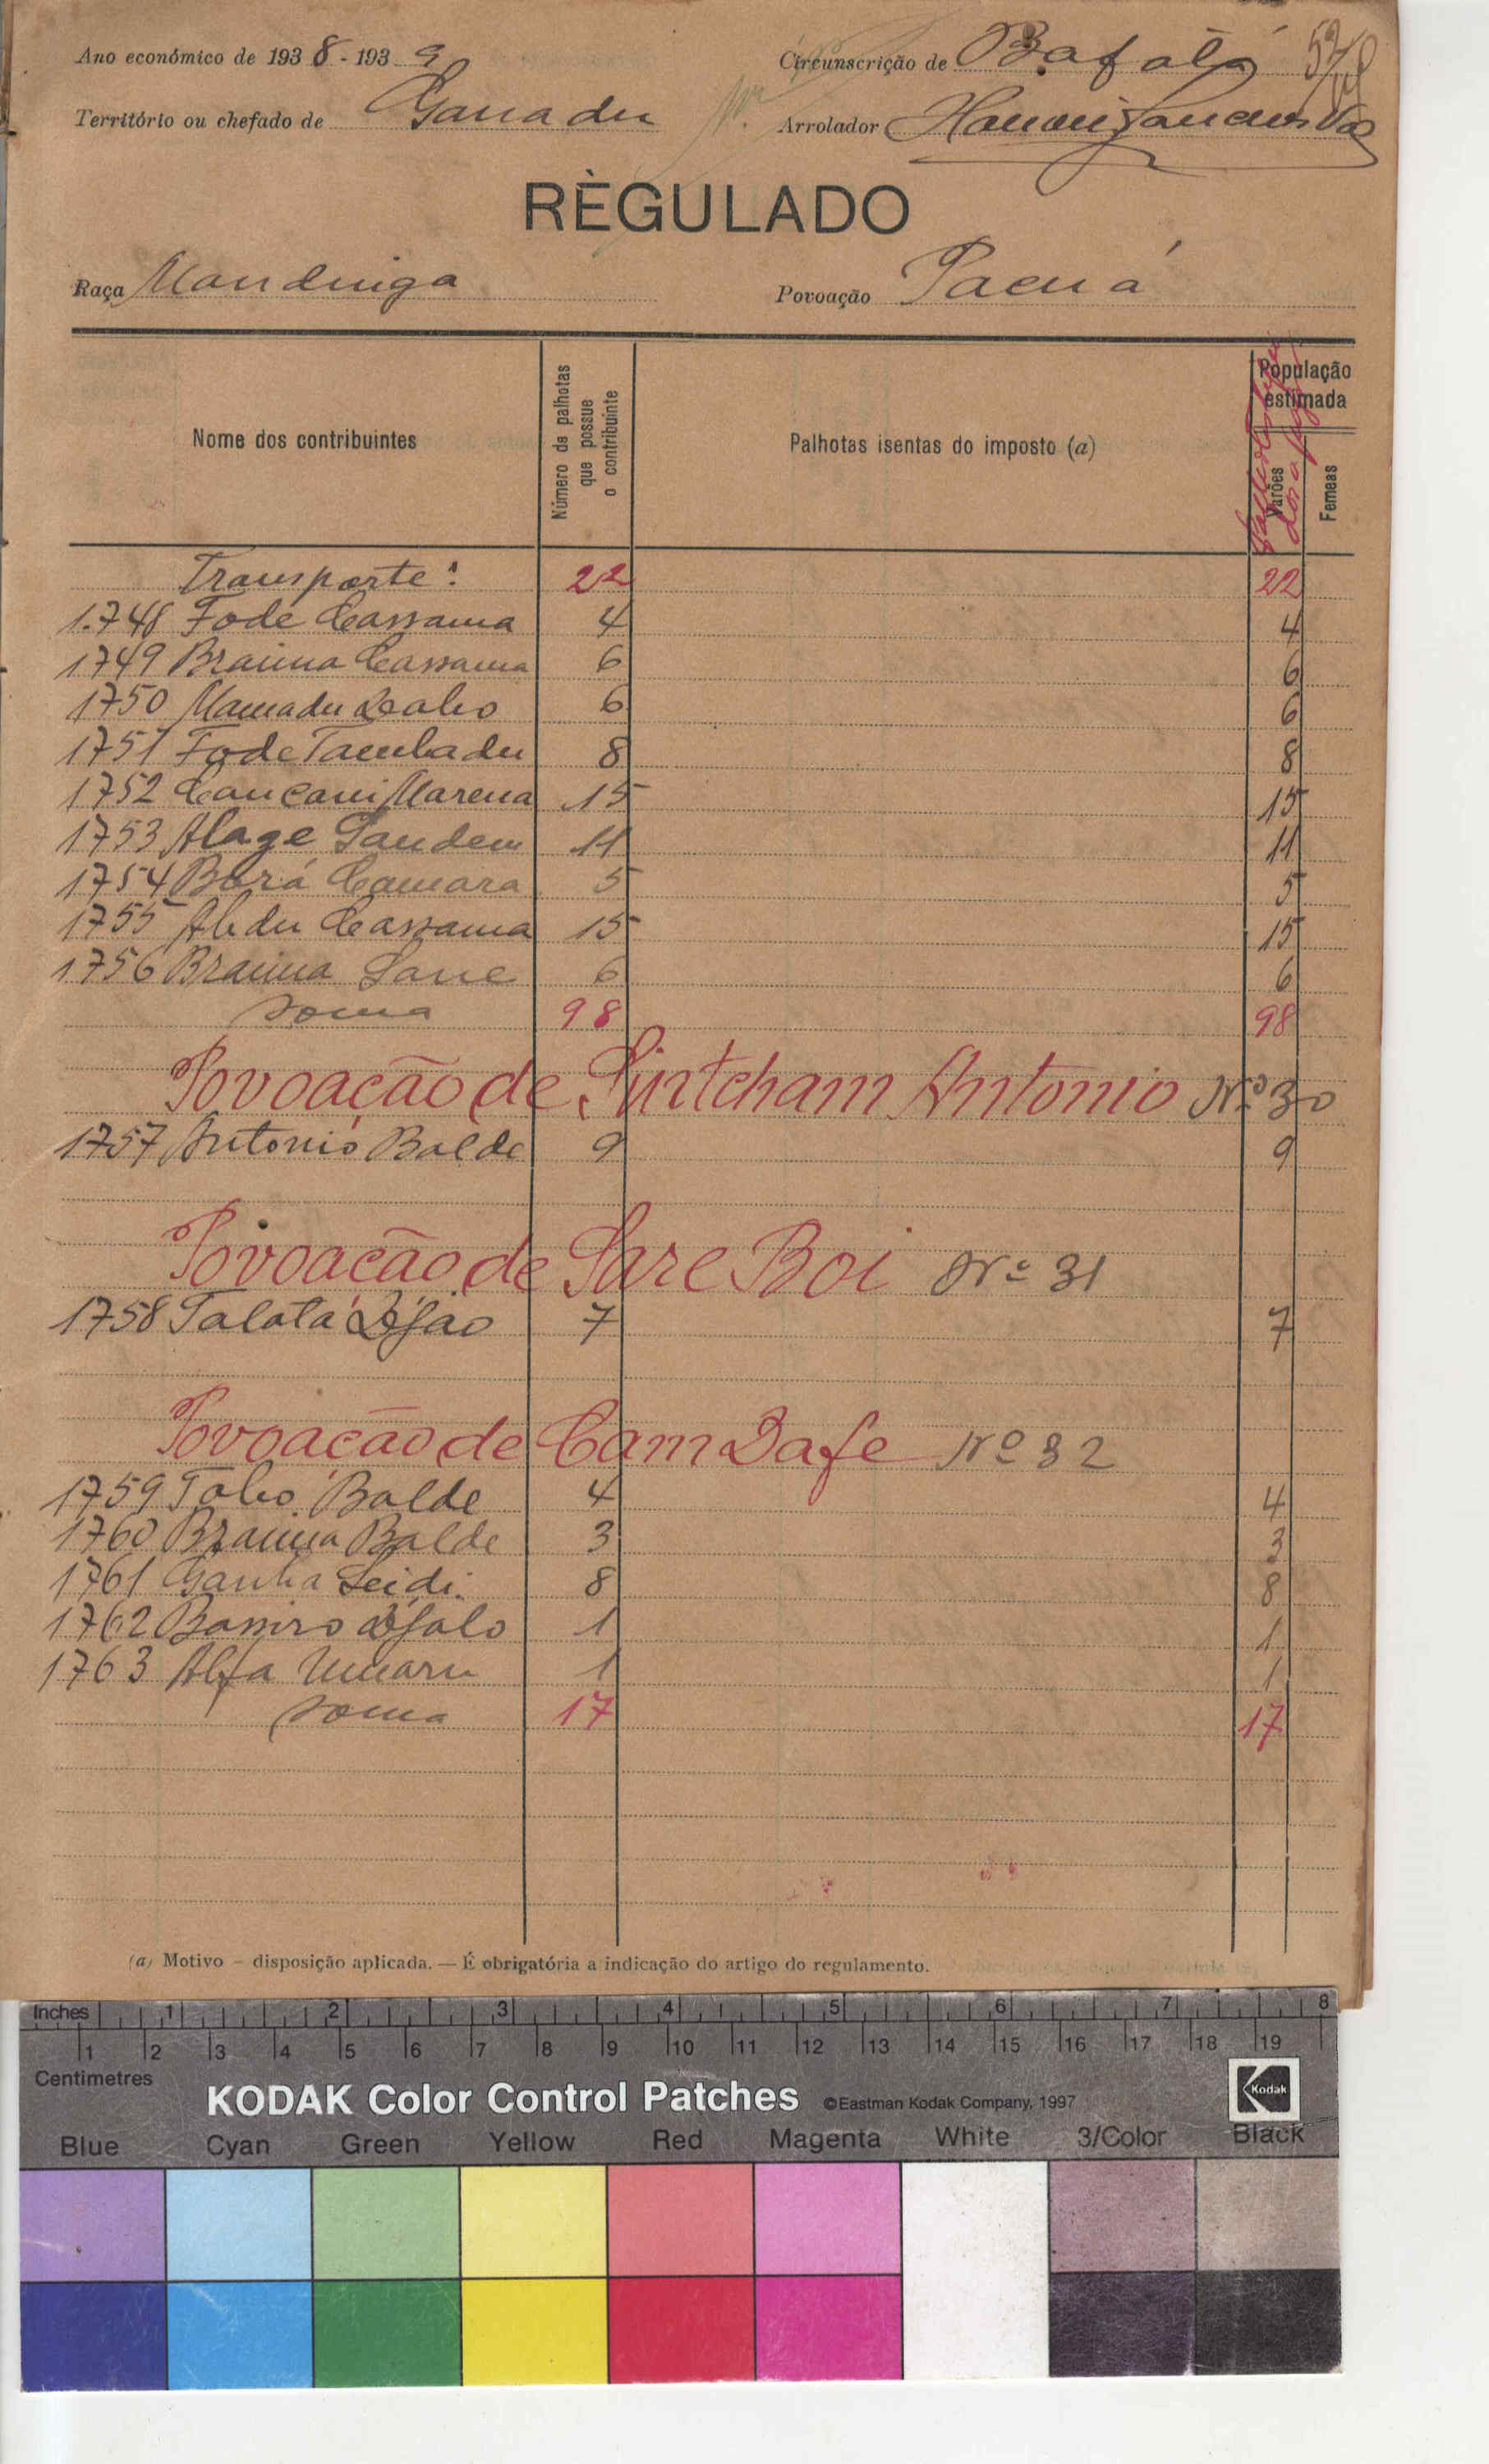 Ano económico de 1938-1939
Circunscrição de Bafatá
Território ou chefado de Ganadu
Arrolador
RÈGULADO
Raça Mandinga
Povoação Pacuá
Nome dos contribuintes
Número de palhotas que possue o contribuinte
Palhotas isentas do imposto (a)
População estimada
Varões
Femeas
Transporte: 22 22
1.748 Fodé Cassama 4 4
1749 Braima Cassama 6 6
1750 Mamadu Dabo 6 6
1751 Fode Tambadu 8 8
1752 Cancani Marena 15 15
1753 Alage Sandem 11 11
1754 Bórá Camara 5 5
1755 Abdu Cassama 15 15
1756 Braima Sane 6 6
Soma 98 98
Povoação de Sintcham Antonio Nº 30
1757 Antonio Balde 9 9
Povoação de Sare Boi Nº 31
1758 Talata Djáo 7 7
Povoação de Cam Dafe Nº 32
1759 Tabo Balde 4 4
1760 Braima Balde 3 3
1761 Ganha Seidi 8 8
1762 Bassiro Djalo 1 1
1763 Alfa Umaru 1 1
Soma 17 17
(a) Motivo – disposição aplicada. — É obrigatória a indicação do artigo do regulamento.
Inches 1 2 3 4 5 6 7 8
1 2 3 4 5 6 7 8 9 10 11 12 13 14 15 16 17 18 19
Centimetres
KODAK Color Control Patches ©Eastman Kodak Company, 1997 Kodak
Blue Cyan Green Yellow Red Magenta White 3/Color Black